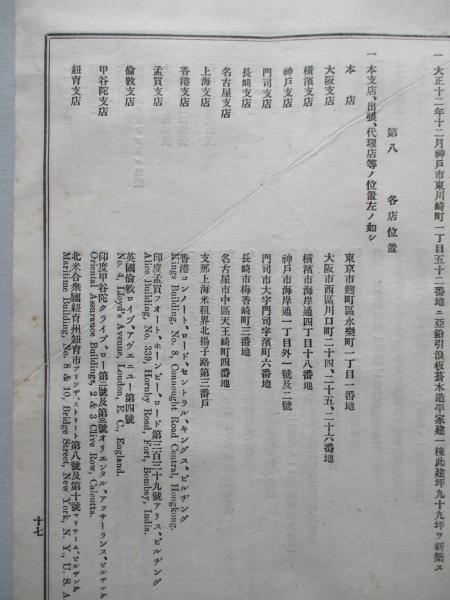 一 大正十二年十二月神戸市東川崎町一丁目五十二番地ニ亞鉛引浪板葺木造平家建一棟此建坪九十九坪ヲ新築ス
第八 各店位置
一 本支店、出張、代理店等ノ位置左ノ如シ
本店 東京市麴町區永樂町一丁目一番地
大阪支店 大阪市西區川口町二十四、二十五、二十六番地
横濱支店 横濱市海岸通四丁目十八番地
神戸支店 神戸市海岸通一丁目外一號及二號
門司支店 門司市大字門司字濱町六番地
長崎支店 長崎市梅香崎町三番地
名古屋支店 名古屋市中區天王崎町四番地
上海支店 支那上海米租界北揚子路第三番戸
香港支店 香港コンノートロードセントラルキングスビルヂング
Kings Building, No. 8, Connought Road Central, Hongkong.
孟買支店 印度孟買フォートホーンビーロード第三百三十九號アリスビルヂング
Alice Building, No. 339, Hornby Road, Fort, Bombay, India.
倫敦支店 英國倫敦ロイヅアヴェニュー第四號
No. 4, Lloyd's Avenue, London, E. C., England.
甲谷陀支店 印度甲谷陀クライブロー第二號及第三號オリエンタルアッサーランスビルヂング
Oriental Assurance Buildings, 2 & 3 Clive Row, Calcutta.
紐育支店 北米合衆國紐育州紐育市ブリッヂストリート第八號及第十號マリテームビルヂング
Maritime Building, No. 8 & 10, Bridge Street, New York, N. Y., U. S. A.
十七